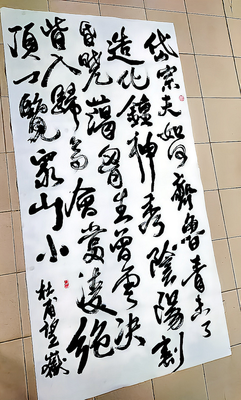 岱宗夫如何齊魯青未了
造化鐘神秀陰陽割
昏曉蕩胷生曾雲决
眥入歸鳥會當凌絶
頂一覽眾山小
杜甫望嶽